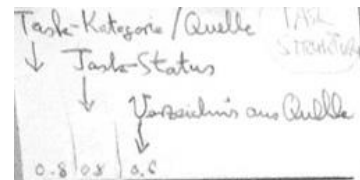 Task-Kategorie / Quelle
TASK
STRUKTUR
↓ Task-Status
↓ Verzeichnis aus Quelle
↓
0.8 | 0.8 | 0.6